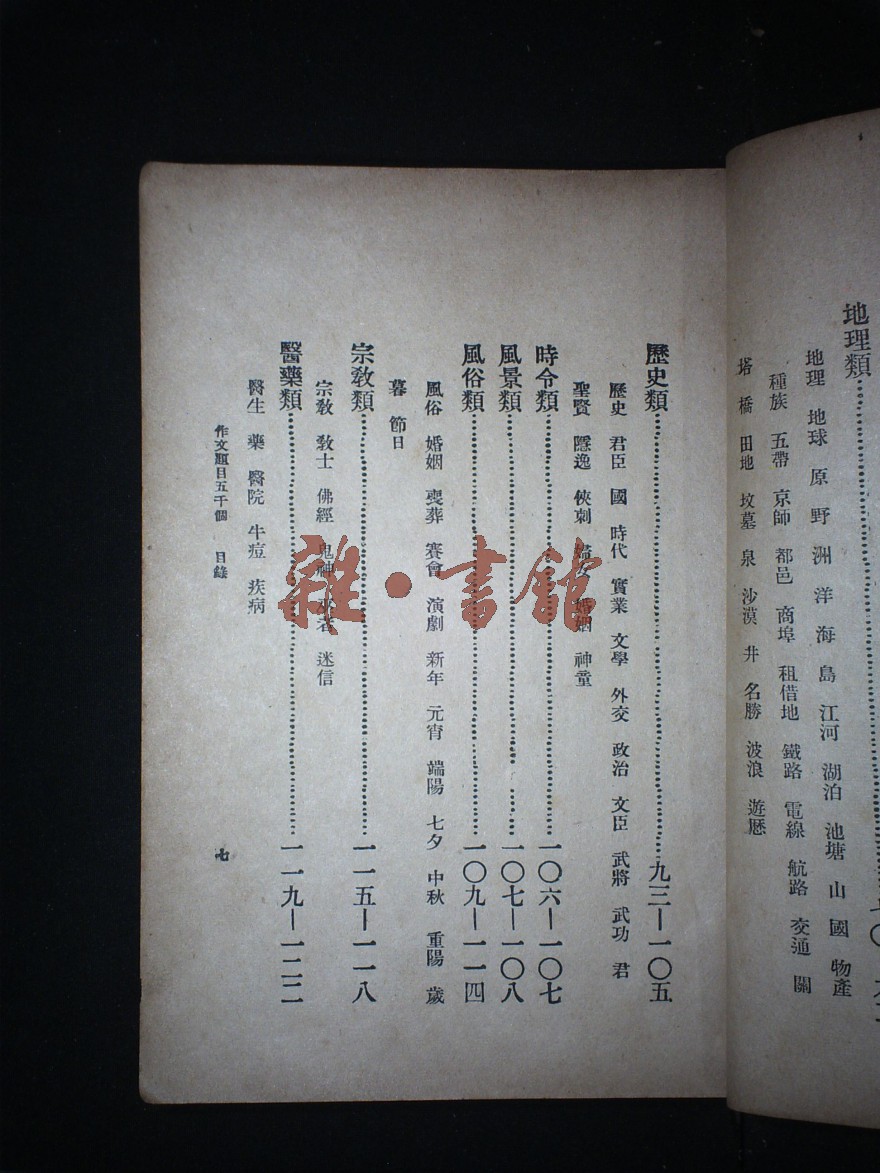 地理類
地理 地球 原 野 洲 洋 海 島 江河 湖泊 池塘 山 國 物產
種族 五帶 京師 都邑 商埠 租借地 鐵路 電線 航路 交通 關
塔 橋 田地 坟墓 泉 沙漠 井 名勝 波浪 遊歷
歷史類……九三—一〇五
歷史 君臣 國 時代 實業 文學 外交 政治 文臣 武將 武功 君
聖賢 隱逸 俠刺 婦女 婚姻 神童
時令類……一〇六—一〇七
風景類……一〇七—一〇八
風俗類……一〇九—一一四
風俗 婚姻 喪葬 賽會 演劇 新年 元宵 端陽 七夕 中秋 重陽 歲
暮 節日
宗教類……一一五—一一八
宗教 教士 佛經 鬼神 巫者 迷信
醫藥類……一一九—一二二
醫生 藥 醫院 牛痘 疾病
作文題目五千個 目錄
七
雜·書館